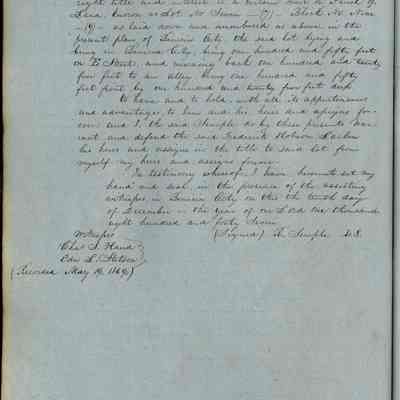 right title and interest in a certain Lot or Parcel of
Land, known as Lot No Seven -(7)- Block No Nine
-(9)- as laid down and numbered as above in the
present plan of Benicia City, the said lot lying and
being in Benicia City, being one hundred and fifty feet
on E Street, and running back one hundred and twenty
five feet to an alley being one hundred and fifty
feet front by one hundred and twenty five feet deep
To have and to hold with all its appurtenances
and advantages to him and his heirs and assigns for-
ever and I the said Semple do by these presents war-
rant and defend the said Frederick
his heirs and assigns in the title to said lot from
myself my heirs and assigns forever
In testimony whereof I have hereunto set my
hand and seal in the presence of the
witnesses in Benicia City on this the tenth day
of December in the year of our Lord one thousand
eight hundred and forty Seven
Witnesses (Signed) R. Semple L.S.
Chas S. Hand
Edw L. Stetson
(Recorded May 19. 1849)